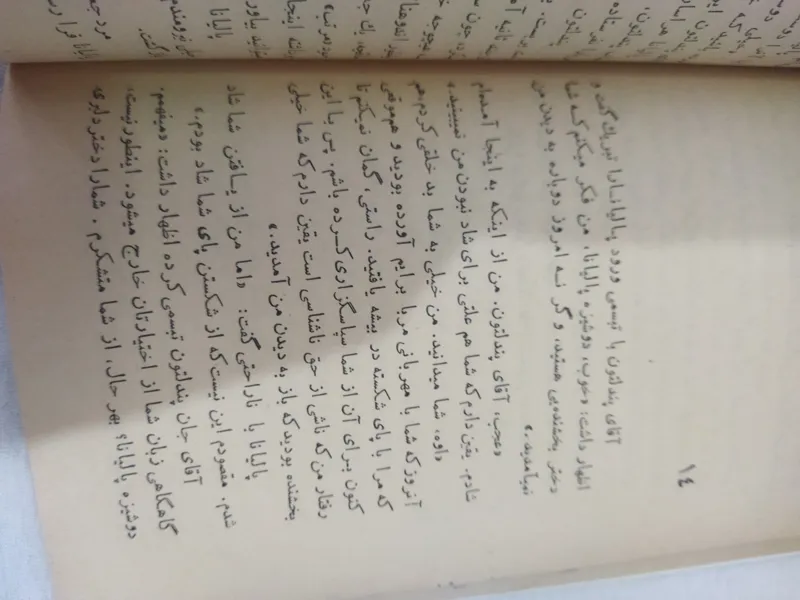 ۱۴
آقای پندلتون با تبسمی ورود پالیانا را تبریک گفت و
اظهار داشت: «خوب، دوشیزه پالیانا، من فکر میکنم که شما
دختر بخشنده‌یی هستید، و گر نه امروز دوباره به دیدن من
نمیآمدید.»
«عجب، آقای پندلتون. من از اینکه به اینجا آمده‌ام
شادم. یقین دارم که شما هم علتی برای شاد نبودن من نمیبینید.»
«اوه، شما میدانید. من خیلی به شما بد خلقی کردم. هم
آنروز که شما با مهربانی مربا برایم آورده بودید و هم موقعی
که مرا با پای شکسته در بیشه یافتید. راستی، گمان نمیکنم تا
کنون برای آن از شما سپاسگزاری کرده باشم. پس با این
رفتار من که ناشی از حق ناشناسی است یقین دارم که شما خیلی
بخشنده بودید که باز به دیدن من آمدید.»
پالیانا با ناراحتی گفت: «اما من از یافتن شما شاد
شدم. مقصودم این نیست که از شکستن پای شما شاد بودم.»
آقای جان پندلتون تبسمی کرده اظهار داشت: «میفهمم.
گاهگاهی زبان شما از اختیارتان خارج میشود. اینطور نیست،
دوشیزه پالیانا؟ بهر حال، از شما متشکرم. شما را دختر دلیری